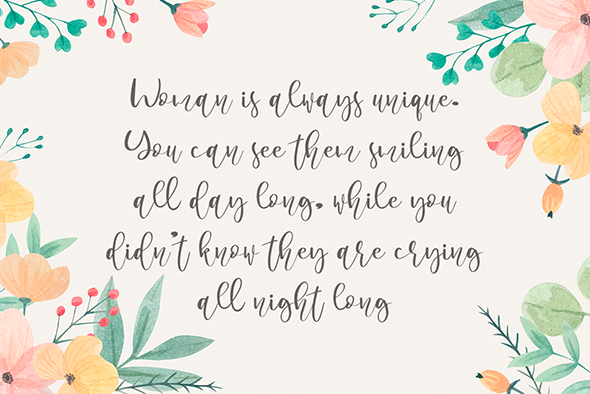 Woman is always unique.
You can see them smiling
all day long, while you
didn't know they are crying
all night long